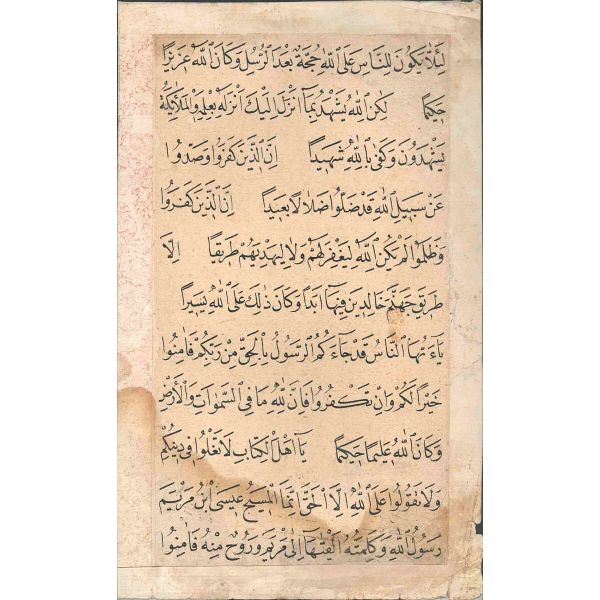 لِئَلَّا يَكُونَ لِلنَّاسِ عَلَى ٱللَّهِ حُجَّةٌ بَعْدَ ٱلرُّسُلِ وَكَانَ ٱللَّهُ عَزِيزًا
حَكِيمًا لَكِنِ ٱللَّهُ يَشْهَدُ بِمَا أَنْزَلَ إِلَيْكَ أَنْزَلَهُ بِعِلْمِهِ وَٱلْمَلَائِكَةُ
يَشْهَدُونَ وَكَفَىٰ بِٱللَّهِ شَهِيدًا إِنَّ ٱلَّذِينَ كَفَرُوا وَصَدُّوا
عَنْ سَبِيلِ ٱللَّهِ قَدْ ضَلُّوا ضَلَالًا بَعِيدًا إِنَّ ٱلَّذِينَ كَفَرُوا
وَظَلَمُوا لَمْ يَكُنِ ٱللَّهُ لِيَغْفِرَ لَهُمْ وَلَا لِيَهْدِيَهُمْ طَرِيقًا إِلَّا
طَرِيقَ جَهَنَّمَ خَالِدِينَ فِيهَا أَبَدًا وَكَانَ ذَٰلِكَ عَلَى ٱللَّهِ يَسِيرًا
يَاءَيُّهَا ٱلنَّاسُ قَدْ جَاءَكُمُ ٱلرَّسُولُ بِٱلْحَقِّ مِنْ رَبِّكُمْ فَآمِنُوا
خَيْرًا لَكُمْ وَإِنْ تَكْفُرُوا فَإِنَّ لِلَّهِ مَا فِي ٱلسَّمَٰوَاتِ وَٱلْأَرْضِ
وَكَانَ ٱللَّهُ عَلِيمًا حَكِيمًا يَا أَهْلَ ٱلْكِتَابِ لَا تَغْلُوا فِي دِينِكُمْ
وَلَا تَقُولُوا عَلَى ٱللَّهِ إِلَّا ٱلْحَقَّ إِنَّمَا ٱلْمَسِيحُ عِيسَى ٱبْنُ مَرْيَمَ
رَسُولُ ٱللَّهِ وَكَلِمَتُهُ أَلْقَٰهَا إِلَىٰ مَرْيَمَ وَرُوحٌ مِنْهُ فَآمِنُوا